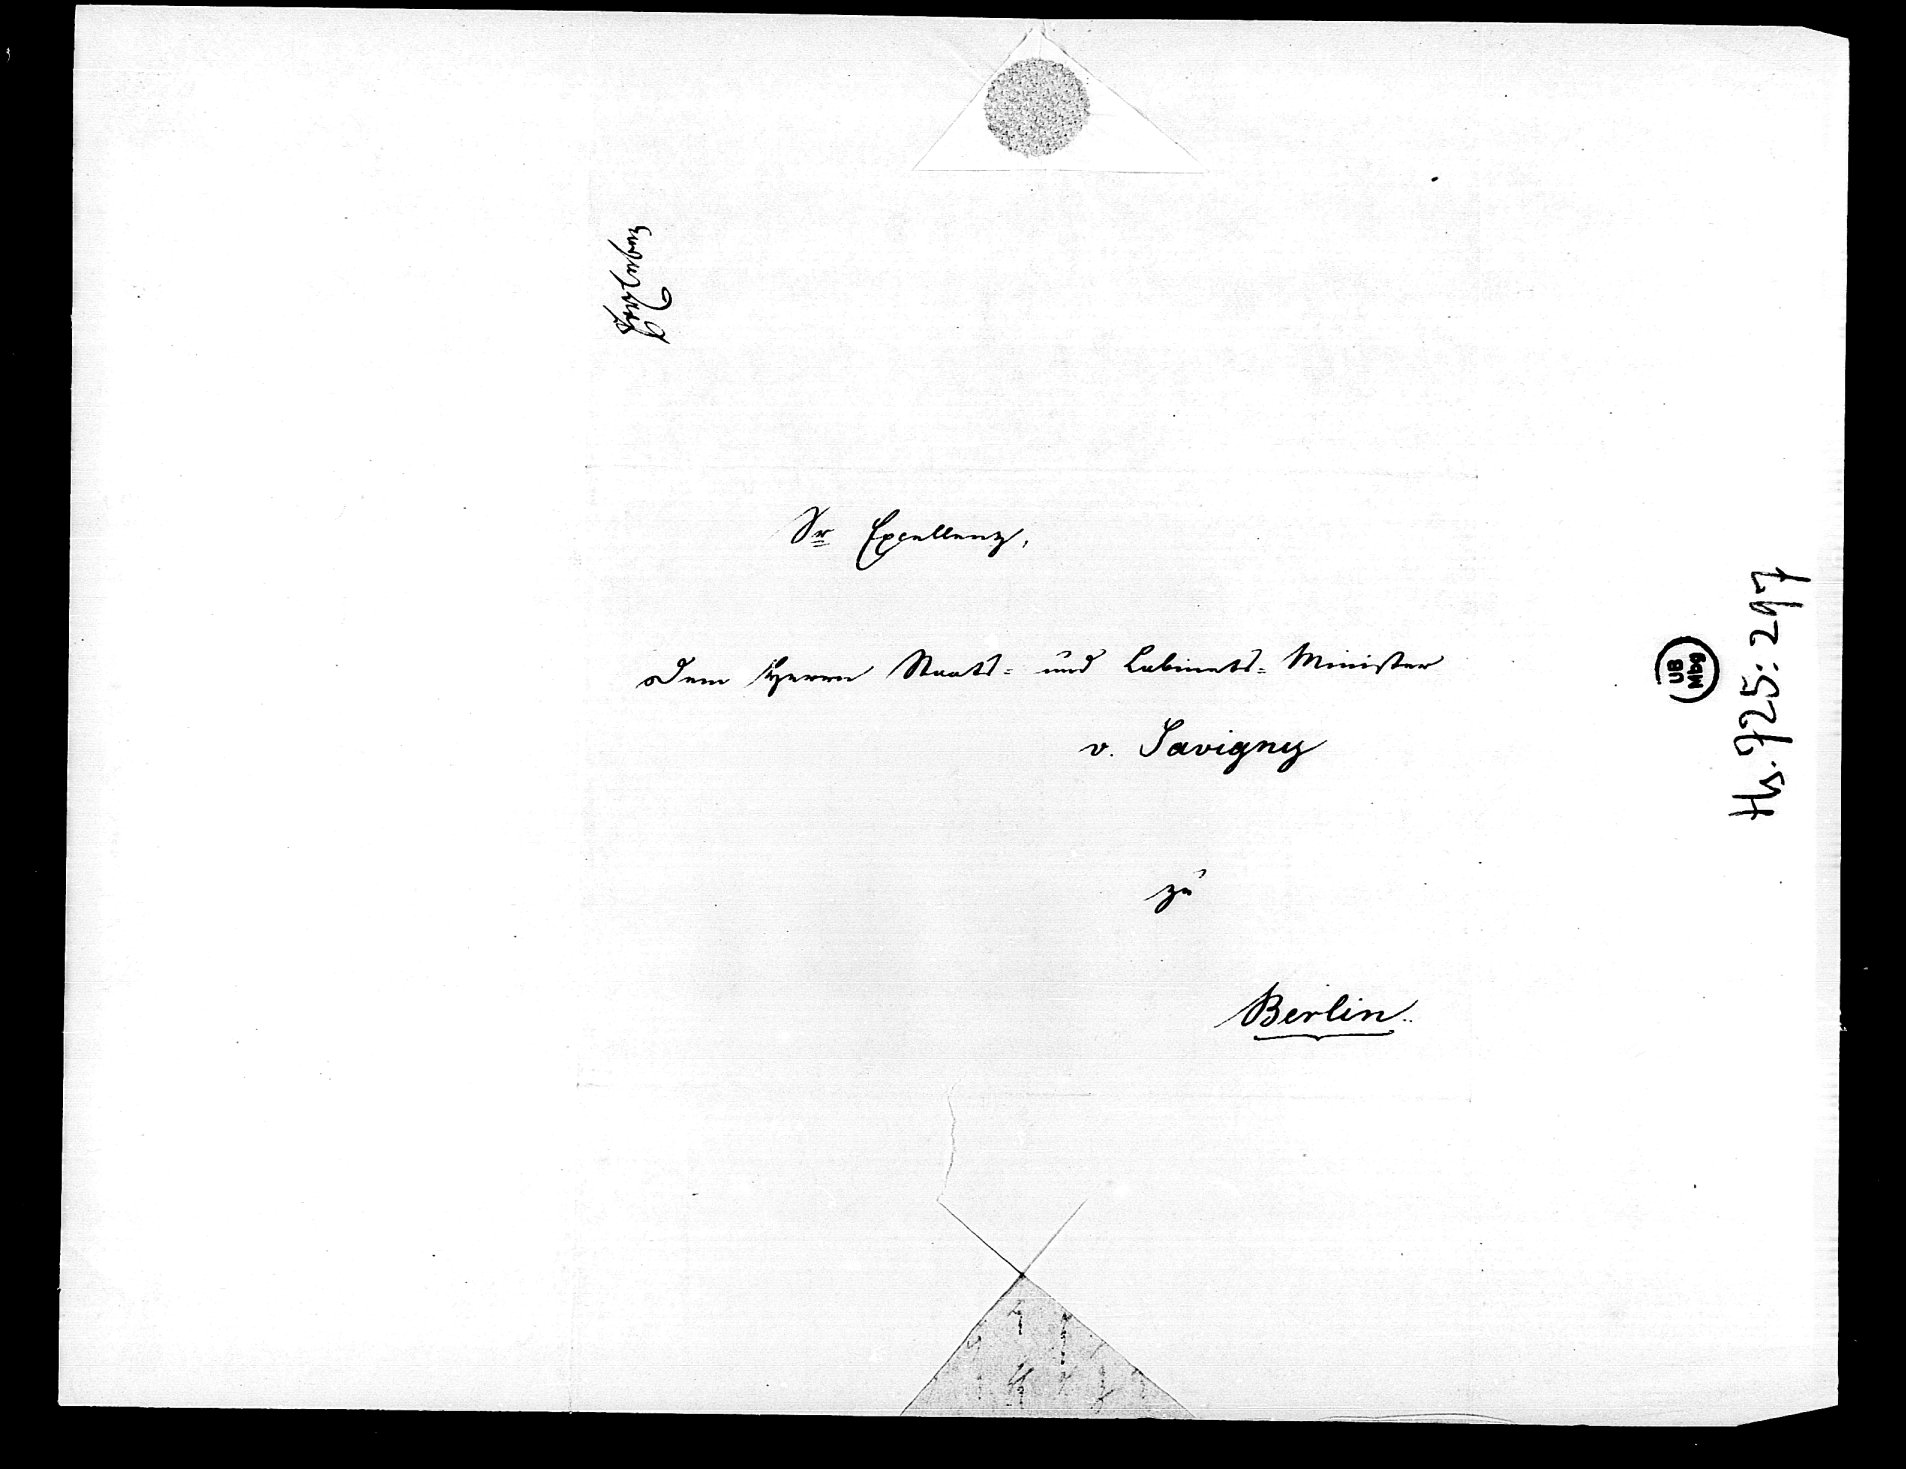 Sr Excellenz,
dem Herrn Staats- und Cabinets-Minister
v. Savigny
zu
Berlin.
UB
Mbg
Hs. 725:297